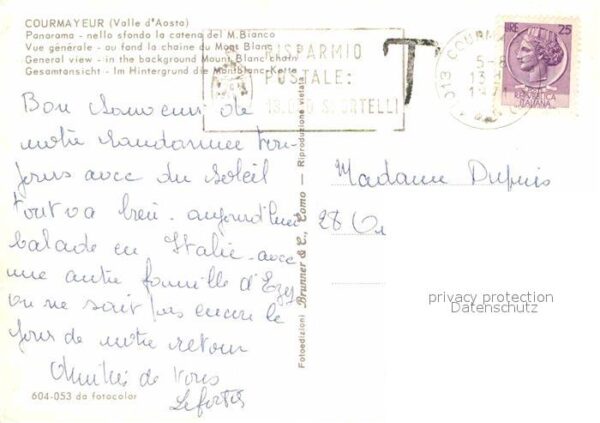 COURMAYEUR (Valle d'Aosta)
Panorama - nello sfondo la catena del M. Bianco
Vue générale - au fond la chaîne du Mont Blanc
General view - in the background Mount Blanc chain
Gesamtansicht - Im Hintergrund die Montblanc-Kette
RISPARMIO
POSTALE:
SPORTELLI
T
COURMA
LIRE 25
REPVBBLICA
ITALIANA
Bon Souvenir de
notre Randonnée tou-
jours avec du soleil
tout va bien. aujourd'hui
balade en Italie avec
une autre famille d'Ezy
on ne sait pas encore le
jour de notre retour
Amitiés de tous
Madame Dupuis
28
Fotoedizioni Brunner & C., Como - Riproduzione vietata
privacy protection
Datenschutz
604-053 da fotocolor